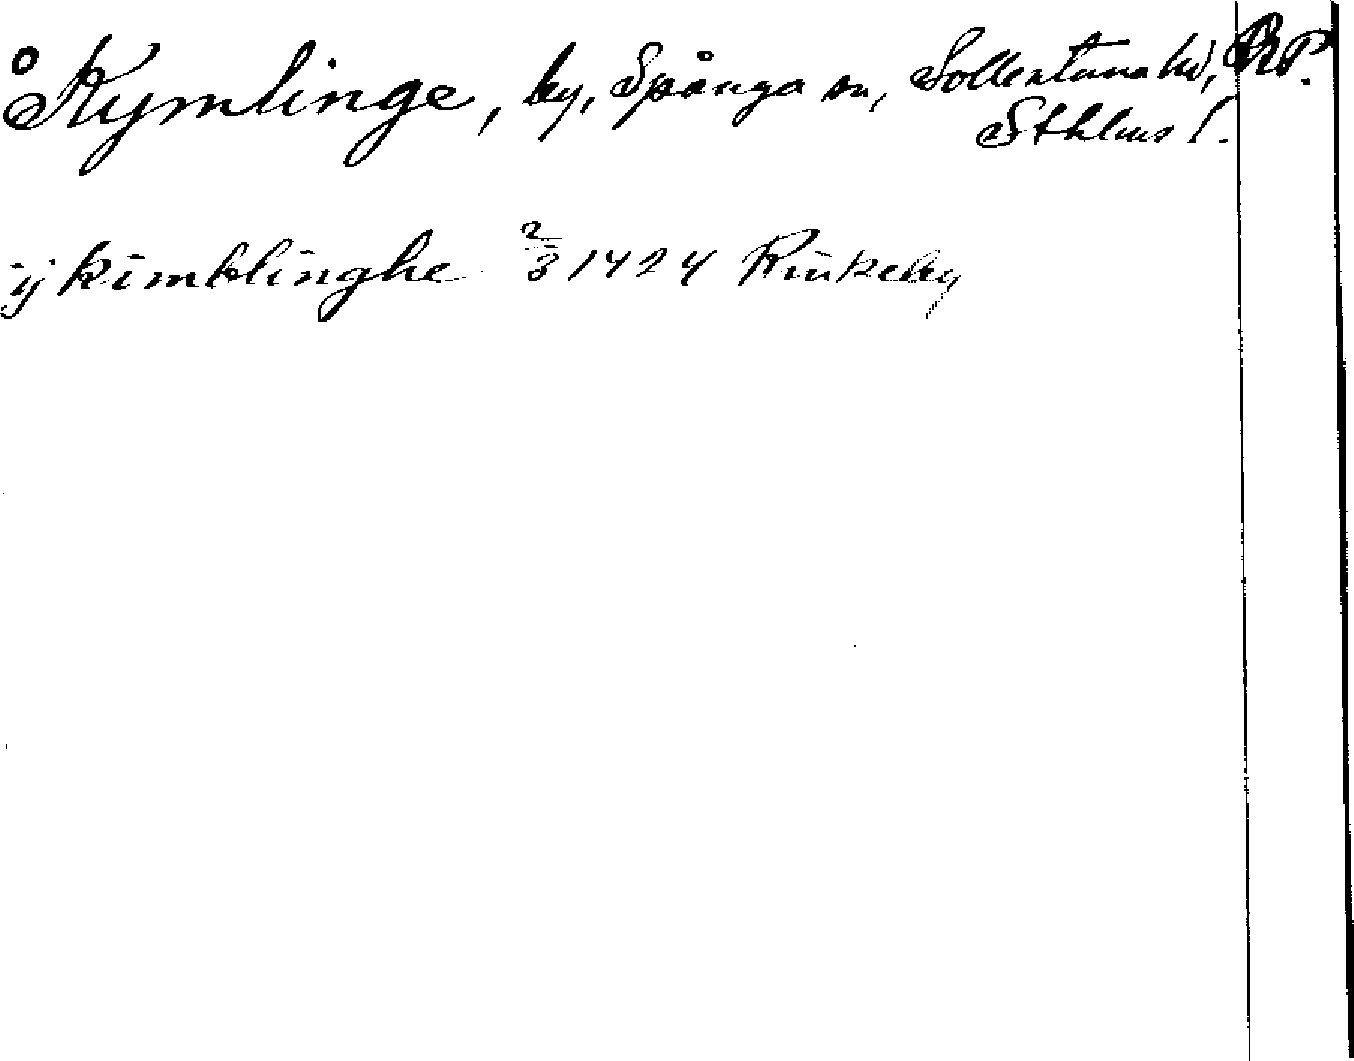 ° Kymlinge, by, Spånga sn, Sollentuna hd, RP.
Sthlms l.
ij kimblinghe 2/3 1424 Rinkeby